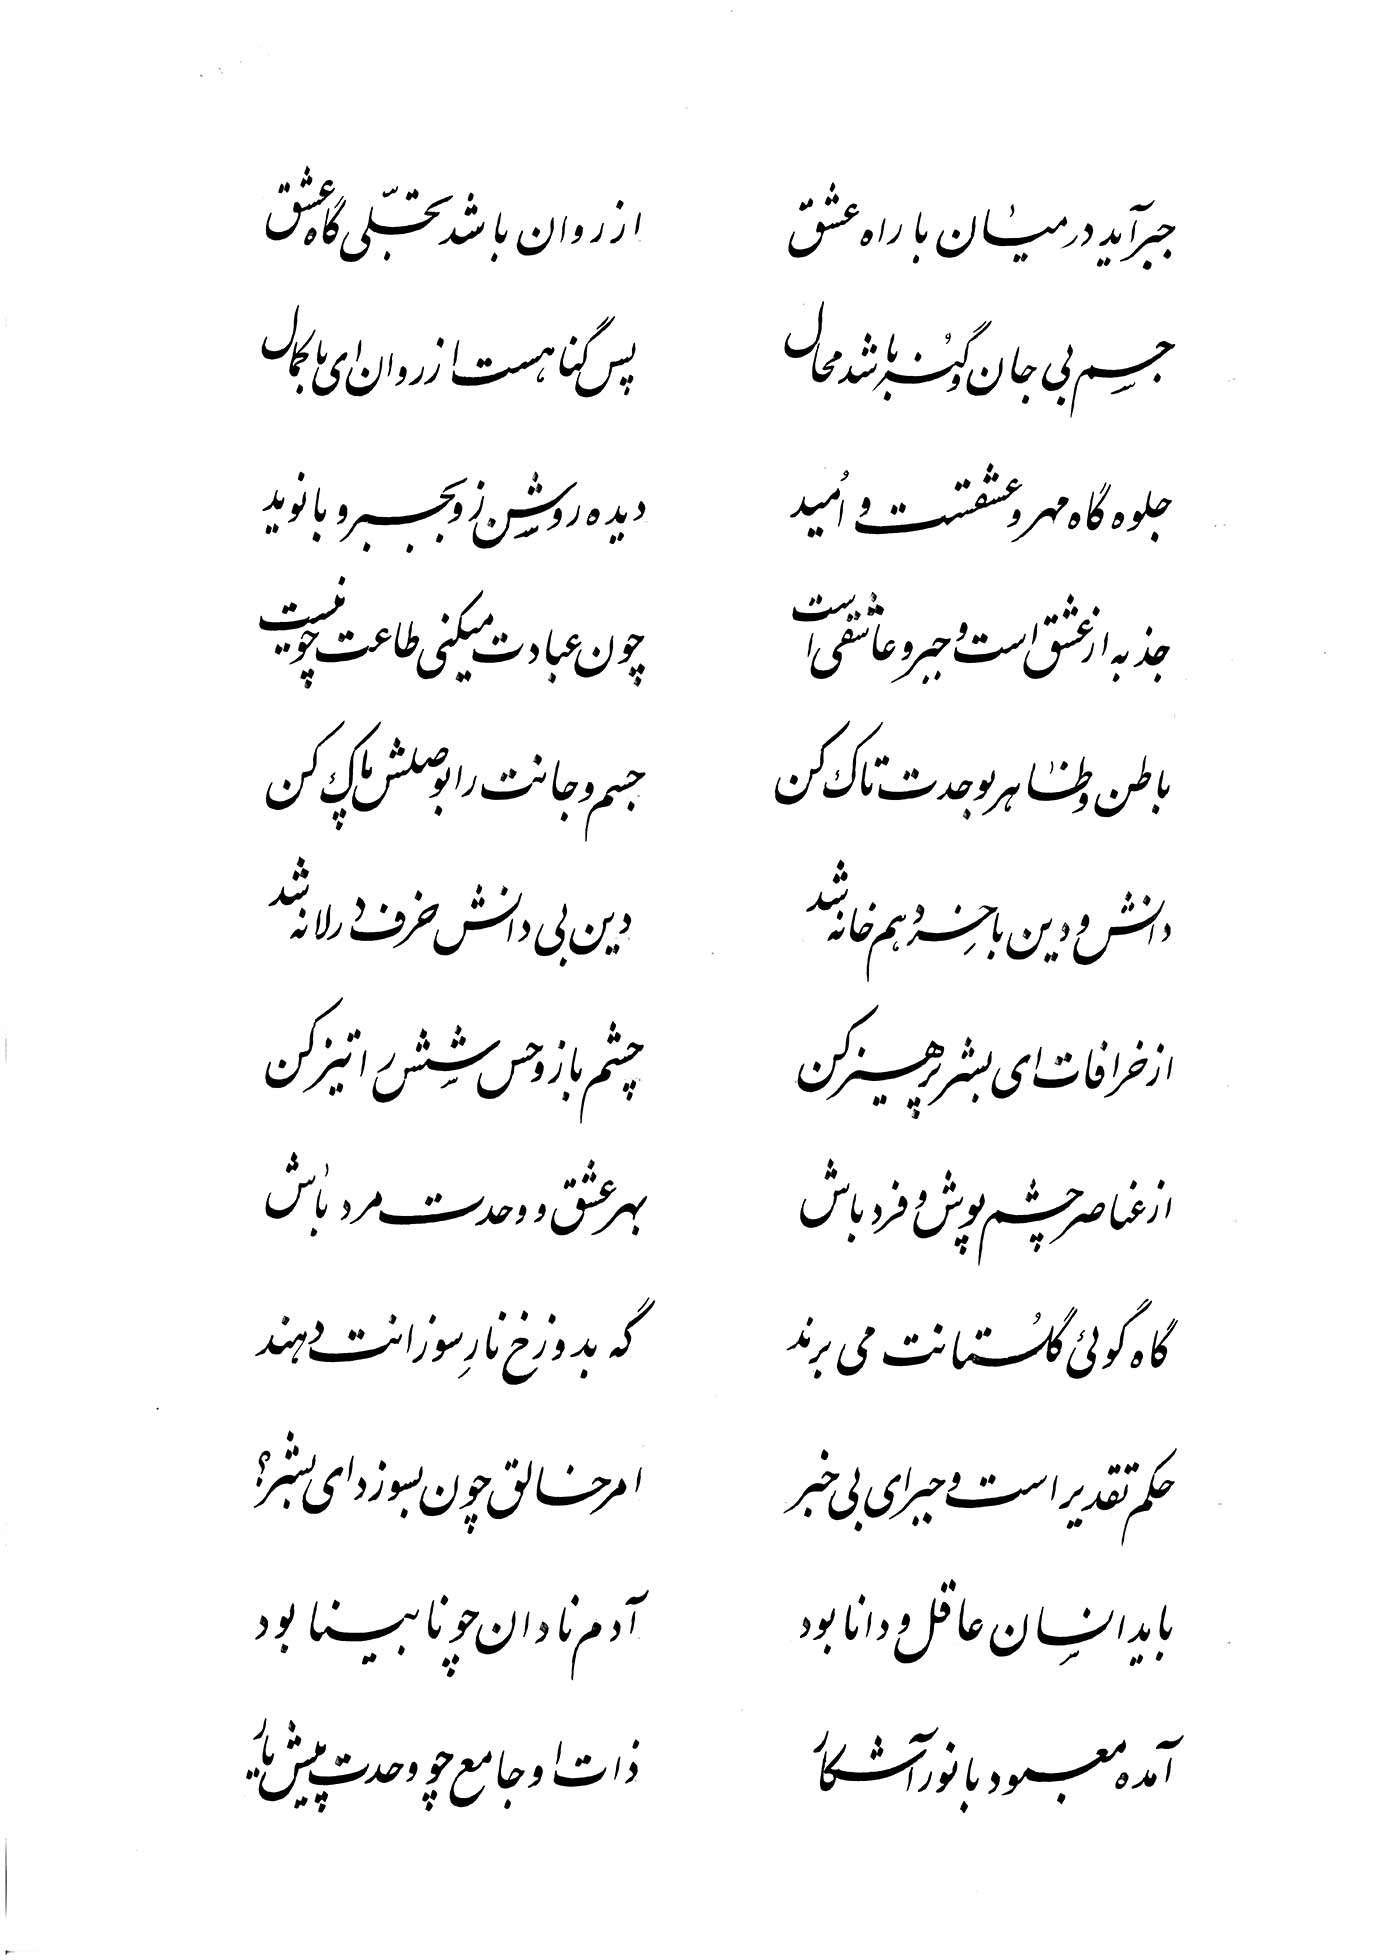 جبر آید در میان با راه عشق از روان باشد تجلّی گاه عشق
جسم بی جان و گنه باشد محال پس گناهست از روان ای با کمال
جلوه گاه مهر و عشقست و اُمید دیده روشن زو بجبر و با نوید
جذبه از عشق است و جبر و عاشقی است چون عبادت میکنی طاعت چو نیست
باطن و ظاهر بوحدت تاک کن جسم و جانت را بوصلش پاک کن
دانش و دین با خِرد هم خانه شد دین بی دانش خرف در لانه شد
از خرافات ای بشر پرهیز کن چشم باز و حس شِشش را تیز کن
از عناصر چشم پوش و فرد باش بهر عشق و وحدت مرد باش
گاه گوئی گلُستانت می برند گه بدوزخ نارِ سوزانت دهند
حکم تقدیر است و جبر ای بی خبر امر خالق چون بسوزد ای بشر؟
باید انسان عاقل و دانا بود آدم نادان چو نابینا بود
آمده معبود با نور آشکار ذات او جامع چو وحدت پیش یار